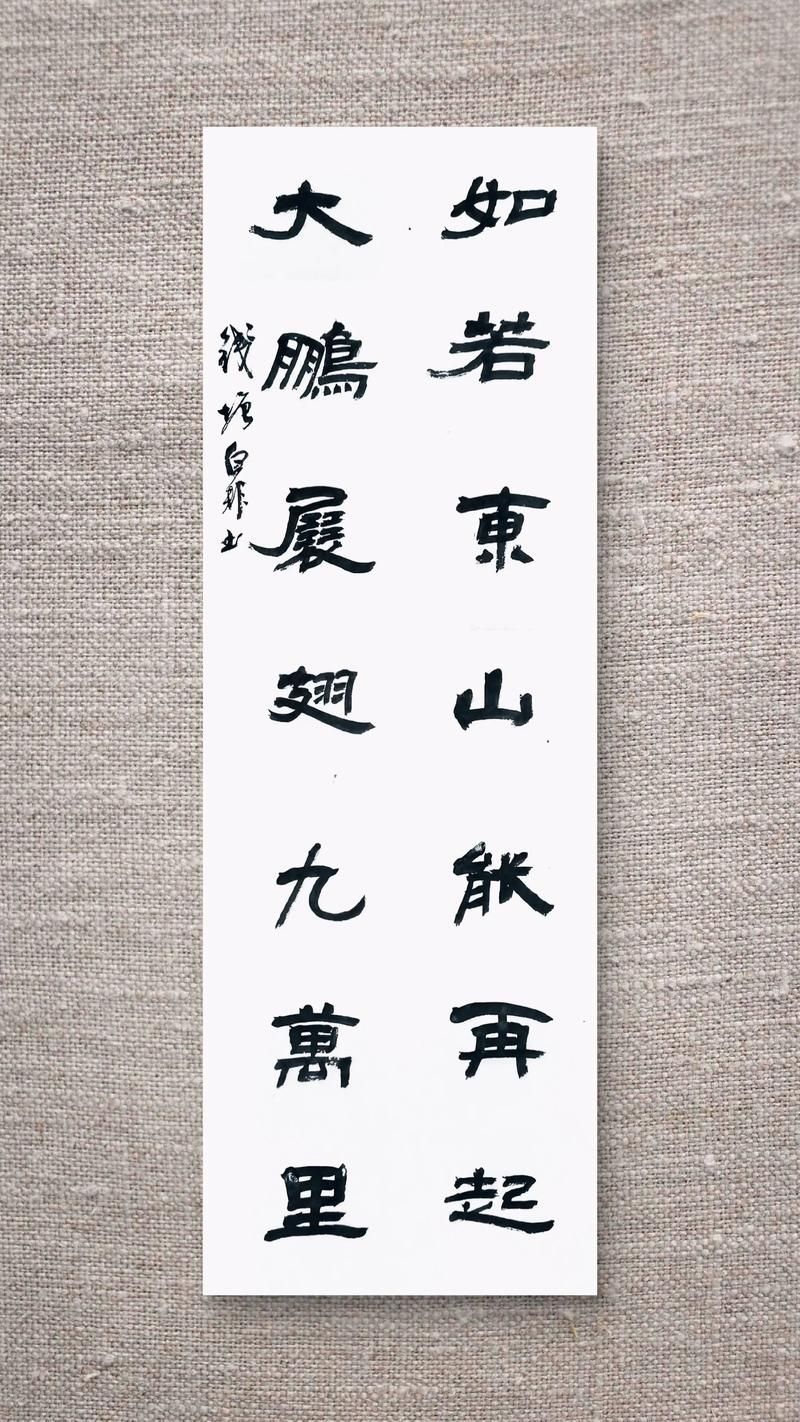 如若東山能再起
大鵬展翅九萬里
錢塘白邨書